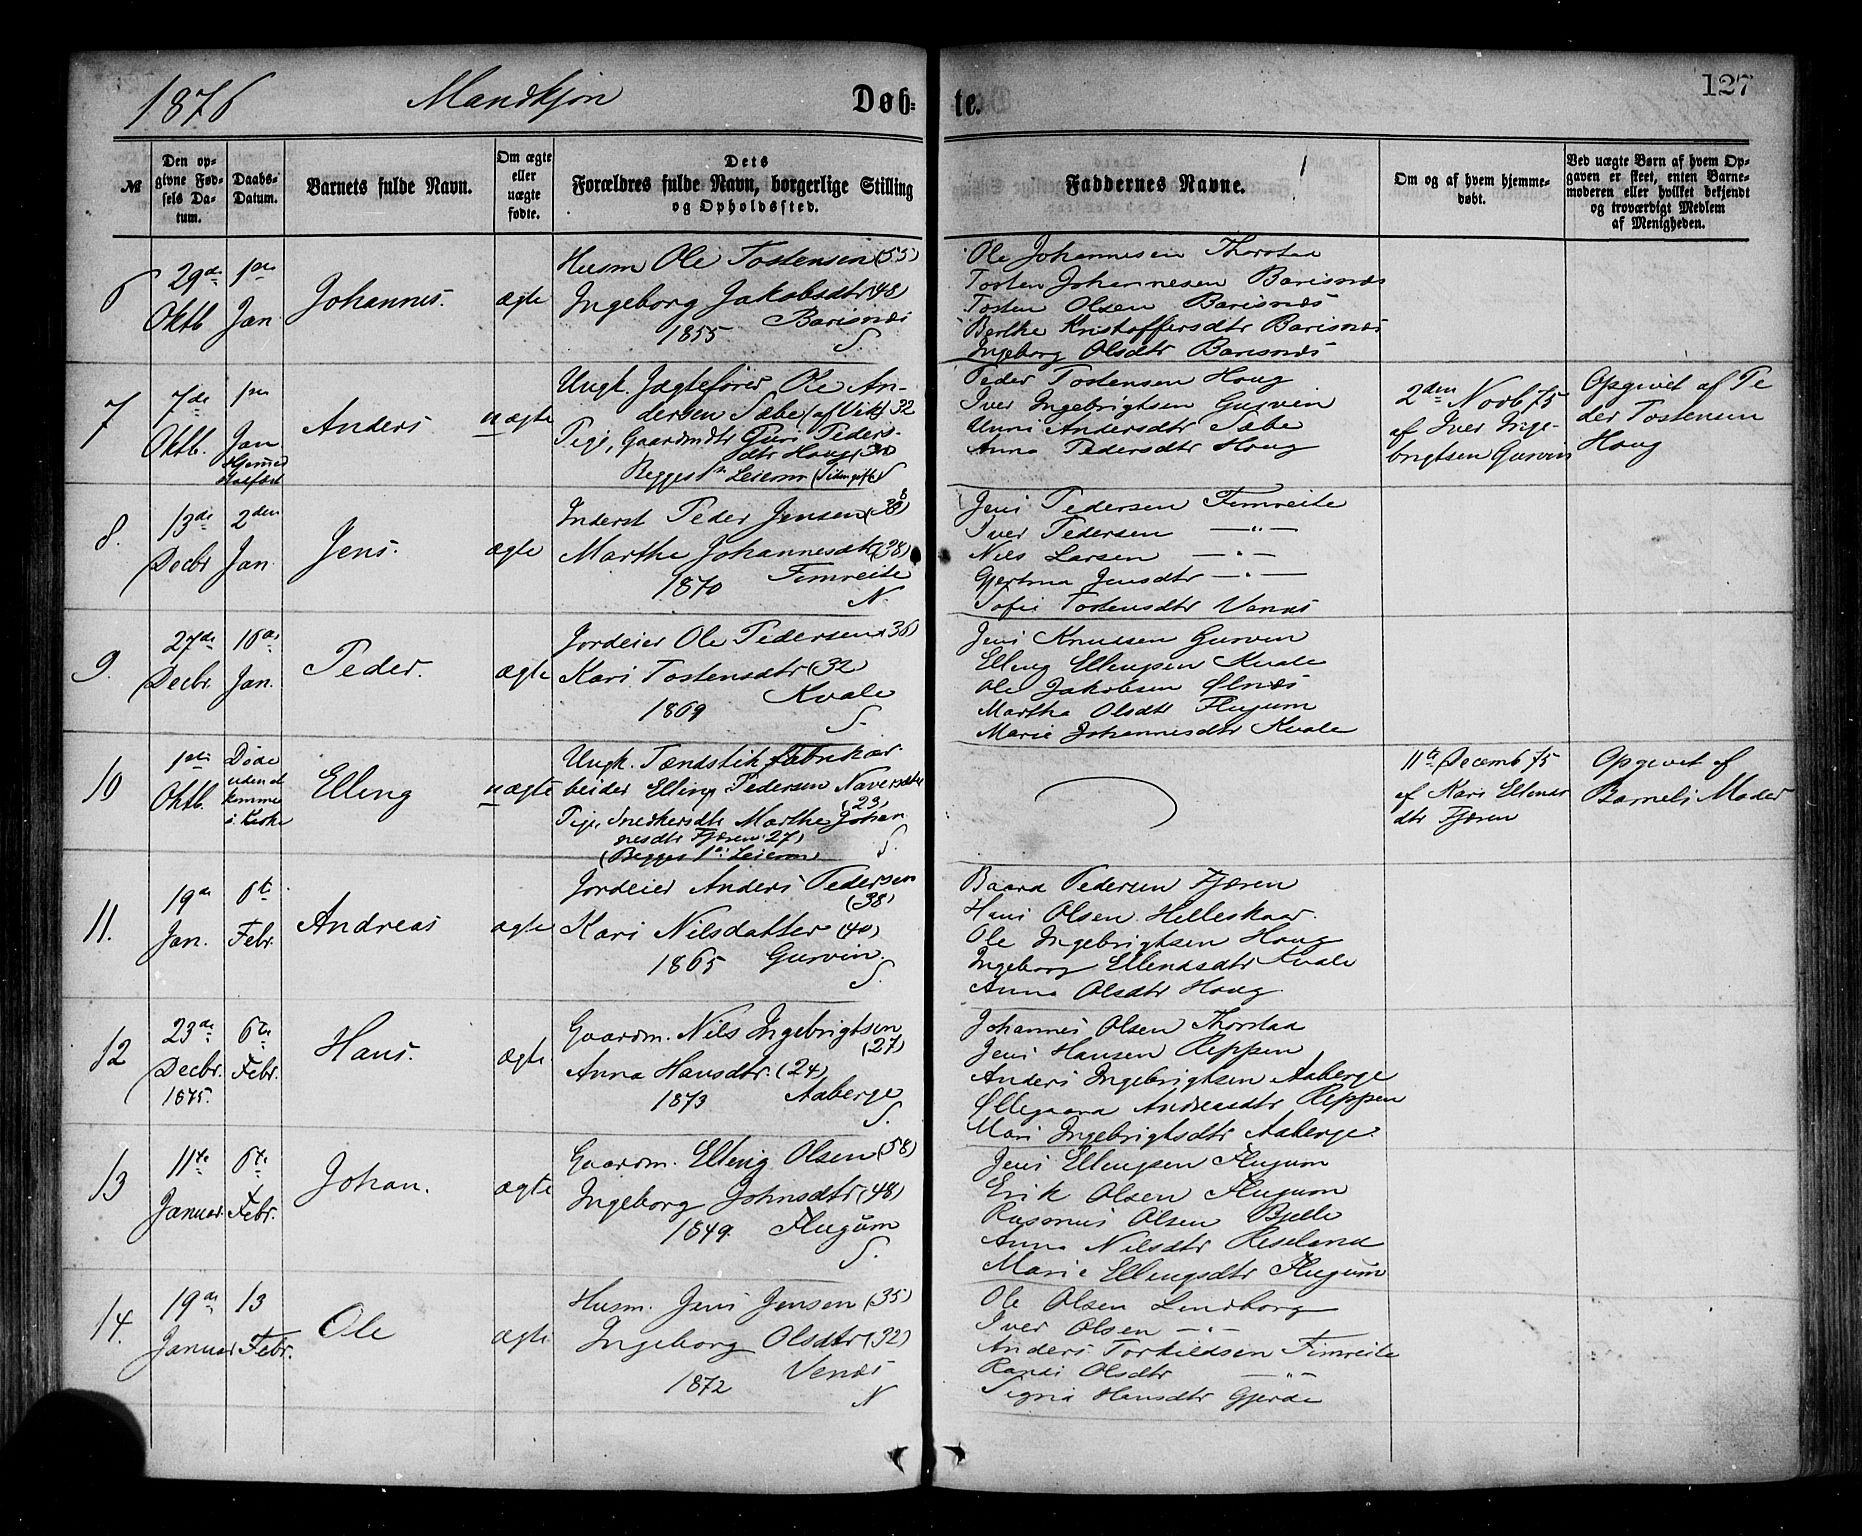 1876 Mandkjøn Døb-te. 127
№
Den op-
givne Fød-
sels Da-
tum.
Daabs-
Datum.
Barnets fulde Navn.
Om ægte
eller
uægte
fødte.
Dets
Forældres fulde Navn, borgerlige Stilling
og Opholdssted.
Faddernes Navne.
Om og af hvem hjemme-
døbt.
Ved uægte Børn af hvem Op-
gaven er skeet, enten Barne-
moderen eller hvilket bekjendt
og troværdigt Medlem
af Menigheden.
6
29de
Oktb.
1ste
Jan
Johannes.
ægte
Husm Ole Tostensen (55)
Ingeborg Jakobsdtr (48)
1855 Barisnæs
S.
Ole Johannesen Thorstad
Tosten Johannesen Barisnæs
Tosten Olsen Barisnæs
Berthe Kristoffersdtr Barisnæs
Ingeborg Olsdtr Barisnæs
7
7de
Oktb.
1ste
Jan
Hjemmed
Stadfæst
Anders
uægte
Ungk. Jægtefører Ole An-
dersen Sæbe (af Vik) 32
Pige, Gaardmdtr Guri Peders-
dtr Haug, 30
Begges 1ste Leierm
Peder Tostensen Haug
Iver Ingebrigtsen Gurvin
Unni Andersdtr Sæbe
Anna Pedersdtr Haug
2den Novb 75
af Iver Inge-
brigtsen Gurvin
Opgivet af Pe
der Tostensen
Haug
8.
13de
Decbr
2den
Jan
Jens.
ægte
Inderst Peder Jensen (38)
Marthe Johannesdtr (38)
1870 Fimreite
N.
Jens Pedersen Fimreite
Iver Pedersen — " —
Nils Larsen — " —
Gjertrua Jensdtr — " —
Sofie Tostensdtr Venæs
9.
27de
Decbr.
16de
Jan.
Peder.
ægte
Jordeier Ole Pedersen (36)
Kari Tostensdtr (32
1869 Kvale
S.
Jens Knudsen Gurvin
Elling Ellingsen Kvale
Ole Jakobsen Ølnæs
Martha Olsdtr Flugum
Marie Johannesdtr Kvale
10
1ste
Oktb.
Døde
uden at
komme
i Kirke
Elling
uægte
Ungk. Tændstik fabrikar
beider Elling Pedersen Naversæter
(23)
Pige, Snedkersdtr Marthe Johan
nesdtr Fjæren 27)
(Begges 1ste Leierm)
S.
11te Decemb 75
af Kari Ellends
dtr Fjæren
Opgivet af
Barnets Moder
11.
19de
Jan.
6te
Febr.
Andreas
ægte
Jordeier Anders Pedersen
(38)
Kari Nilsdatter (40)
1865 Gurvin.
S.
Baard Pedersen Fjæren
Hans Olsen Helleskaar.
Ole Ingebrigtsen Haug
Ingeborg Ellendsdtr Kvale
Anna Olsdtr Haug.
12
23de
Decbr.
1875.
6te
Febr.
Hans.
ægte
Gaardm. Nils Ingebrigtsen
(27)
Anna Hansdtr. (24)
1873 Aaberge
S.
Johannes Olsen Thorstad
Jens Hansen Reppen
Anders Ingebrigtsen Aaberge
Ellegaard Andreasdtr Reppen
Mari Ingebrigtsdtr Aaberge.
13
11te
Januar
6te
Febr.
Johan.
ægte
Gaardm. Elling Olsen (58)
Ingeborg Johnsdtr (48)
1849. Flugum
S.
Jens Ellingsen Flugum
Erik Olsen Flugum
Rasmus Olsen Bjelle
Anna Nilsdtr Reseland
Marie Ellingsdtr Flugum
14.
19de
Januar
13
Febr.
Ole
ægte
Husm. Jens Jensen (35)
Ingeborg Olsdtr (32)
1872 Venæs
N
Ole Olsen Lindborg
Iver Olsen — " —
Anders Torkildsen Fimreite
Randi Olsdtr — " —
Signa Hansdtr Gjerde